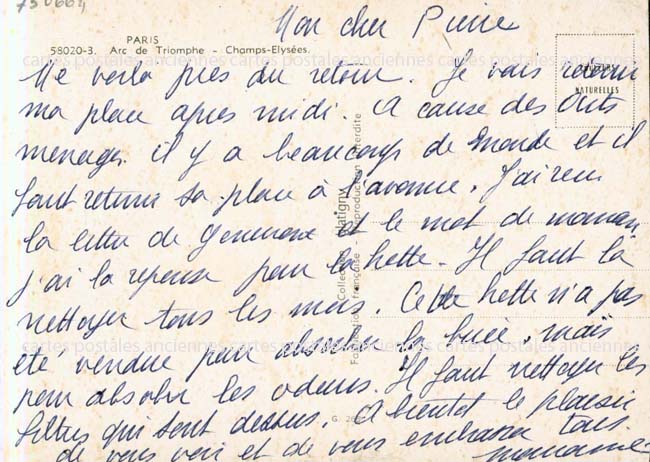 750664
Mon cher Pierre
PARIS
58020-3. Arc de Triomphe - Champs-Elysées.
COULEURS
NATURELLES
Me voilà près du retour. Je vais retenir
ma place après midi. A cause des Arts
menagers il y a beaucoup de monde et il
faut retenir sa place à l'avance. J'ai reçu
la lettre de Genevieve et le mot de maman
j'ai la reponse pour la hotte. Il faut la
nettoyer tous les mois. Cette hotte n'a pas
été vendue pour absorber la buée, mais
pour absorber les odeurs. Il faut nettoyer les
filtres qui sont dessus. A bientot le plaisir
de vous voir et de vous embrasser tous
mamame
Collection
Matigny
Fabrication française - Reproduction interdite
cartes postales anciennes cartes postales anciennes
cartes postales anciennes cartes postales anciennes